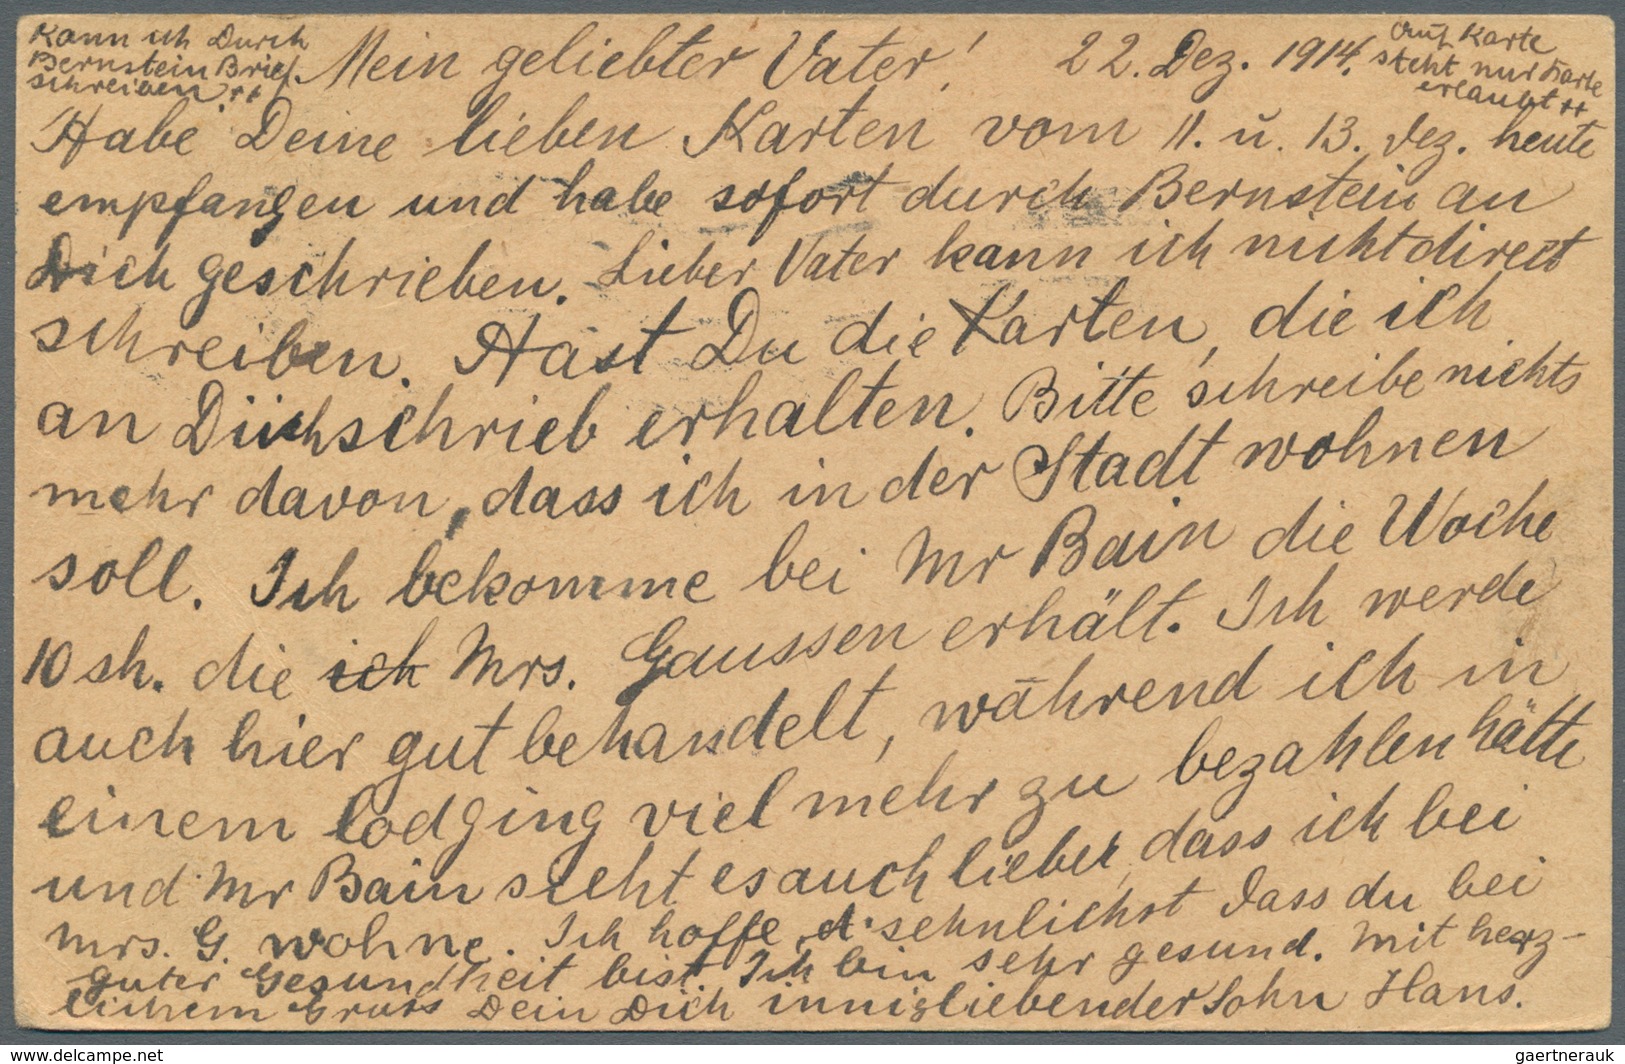 Kann ich Durch
Bernstein Brief
schreiben ++
Mein geliebter Vater! 22. Dez. 1914.
Auf Karte
steht nur Karte
erlaubt ++
Habe Deine lieben Karten vom 11. u. 13. Dez. heute
empfangen und habe sofort durch Bernstein an
Dich geschrieben. Lieber Vater kann ich nicht direct
schreiben. Hast Du die Karten, die ich
an Dich schrieb erhalten. Bitte schreibe nichts
mehr davon, dass ich in der Stadt wohnen
soll. Ich bekomme bei Mr Bain die Woche
10 sh. die ich Mrs. Gaussen erhält. Ich werde
auch hier gut behandelt, während ich in
einem lodging viel mehr zu bezahlen hätte
und Mr Bain sieht es auch lieber, dass ich bei
Mrs. G. wohne. Ich hoffe sehnlichst dass du bei
guter Gesundheit bist. Ich bin sehr gesund. Mit herz-
lichem Gruss Dein Dich innigliebender Sohn Hans.
www.delcampe.net
gaertnerauk